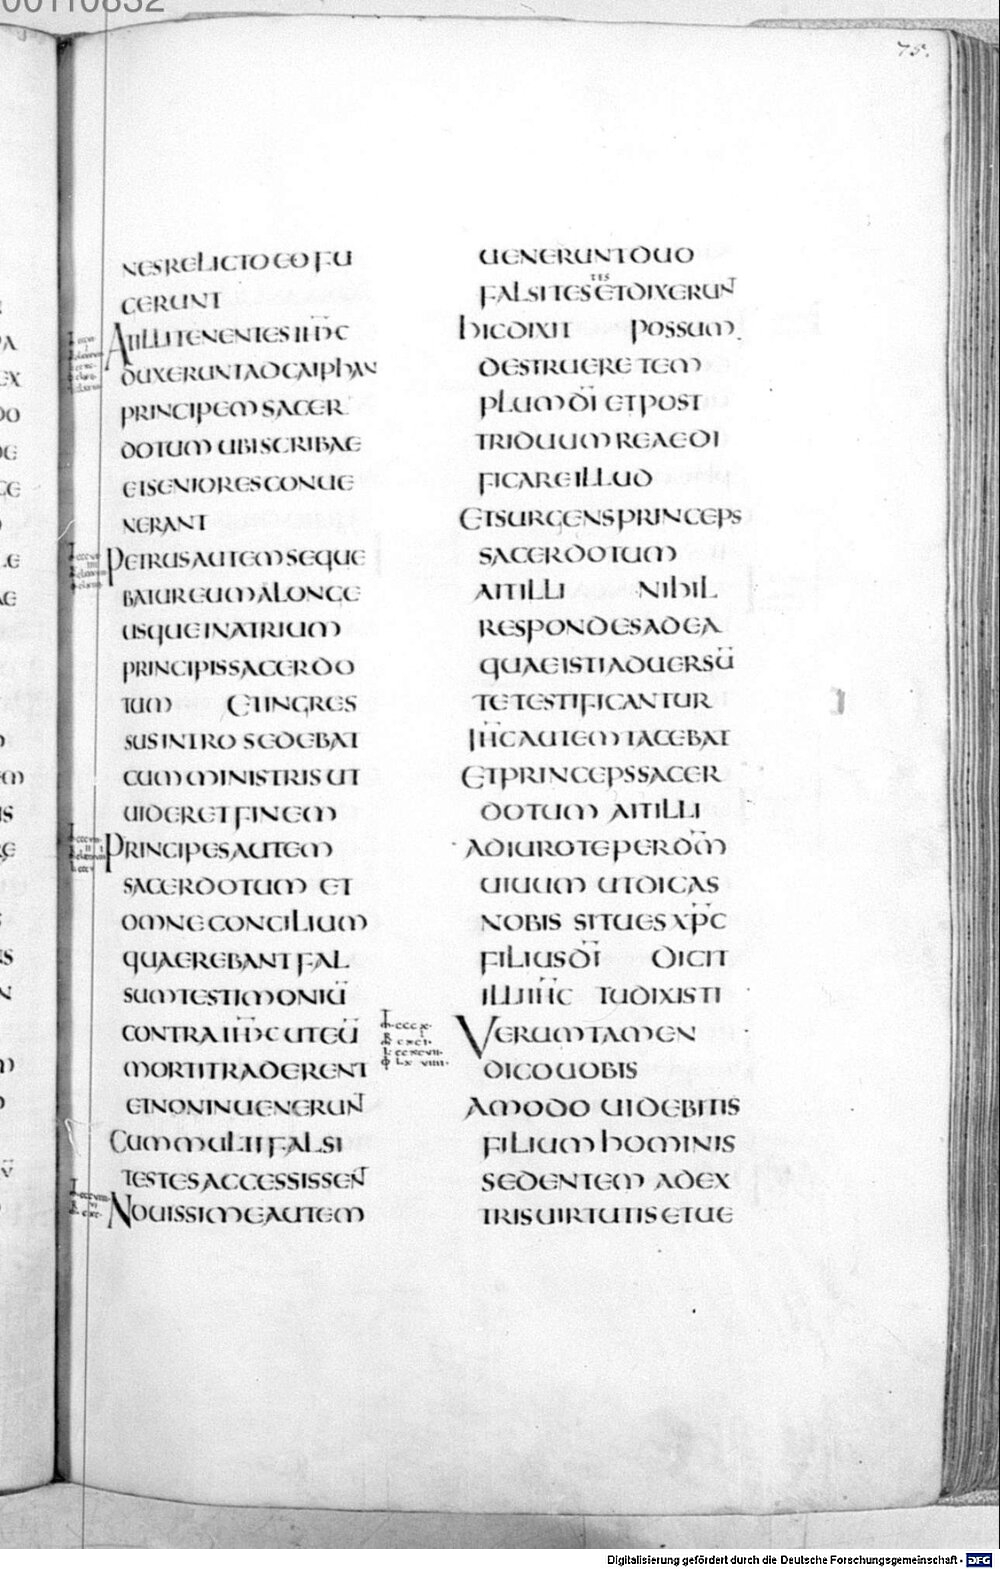 75.
NESRELICTOEOFU
GERUNT
ATILLITENENTESIHC
DUXERUNTADCAIPHAN
PRINCIPEMSACER
DOTUMUBISCRIBAE
ETSENIORESCONUE
NERANT
PETRUSAUTEMSEQUE
BATUREUMALONGE
USQUEINATRIUM
PRINCIPISSACERDO
TUM ETINGRES
SUSINTROSEDEBAT
CUMMINISTRISUT
UIDERETFINEM
PRINCIPESAUTEM
SACERDOTUM ET
OMNECONCILIUM
QUAEREBANTFAL
SUMTESTIMONIŪ
CONTRAIHCUTEŪ
MORTITRADERENT
ETNONINUENERUNT
CUMMULTIFALSI
TESTESACCESSISSENT
NOUISSIMEAUTEM
UENERUNTDUO
FALSITESTESETDIXERUNT
HICDIXIT POSSUM
DESTRUERETEM
PLUMDĪETPOST
TRIDUUMREAEDI
FICAREILLUD
ETSURGENSPRINCEPS
SACERDOTUM
AITILLI NIHIL
RESPONDESADEA
QUAEISTIADUERSŪ
TETESTIFICANTUR
IHCAUTEMTACEBAT
ETPRINCEPSSACER
DOTUM AITILLI
ADIUROTEPERDM̄
UIUUM UTDICAS
NOBIS SITUESXPC
FILIUSDĪ DICIT
ILLIIHC TUDIXISTI
VERUMTAMEN
DICOUOBIS
AMODO UIDEBITIS
FILIUMHOMINIS
SEDENTEM ADEX
TRISUIRTUTISETUE
Digitalisierung gefördert durch die Deutsche Forschungsgemeinschaft - DFG